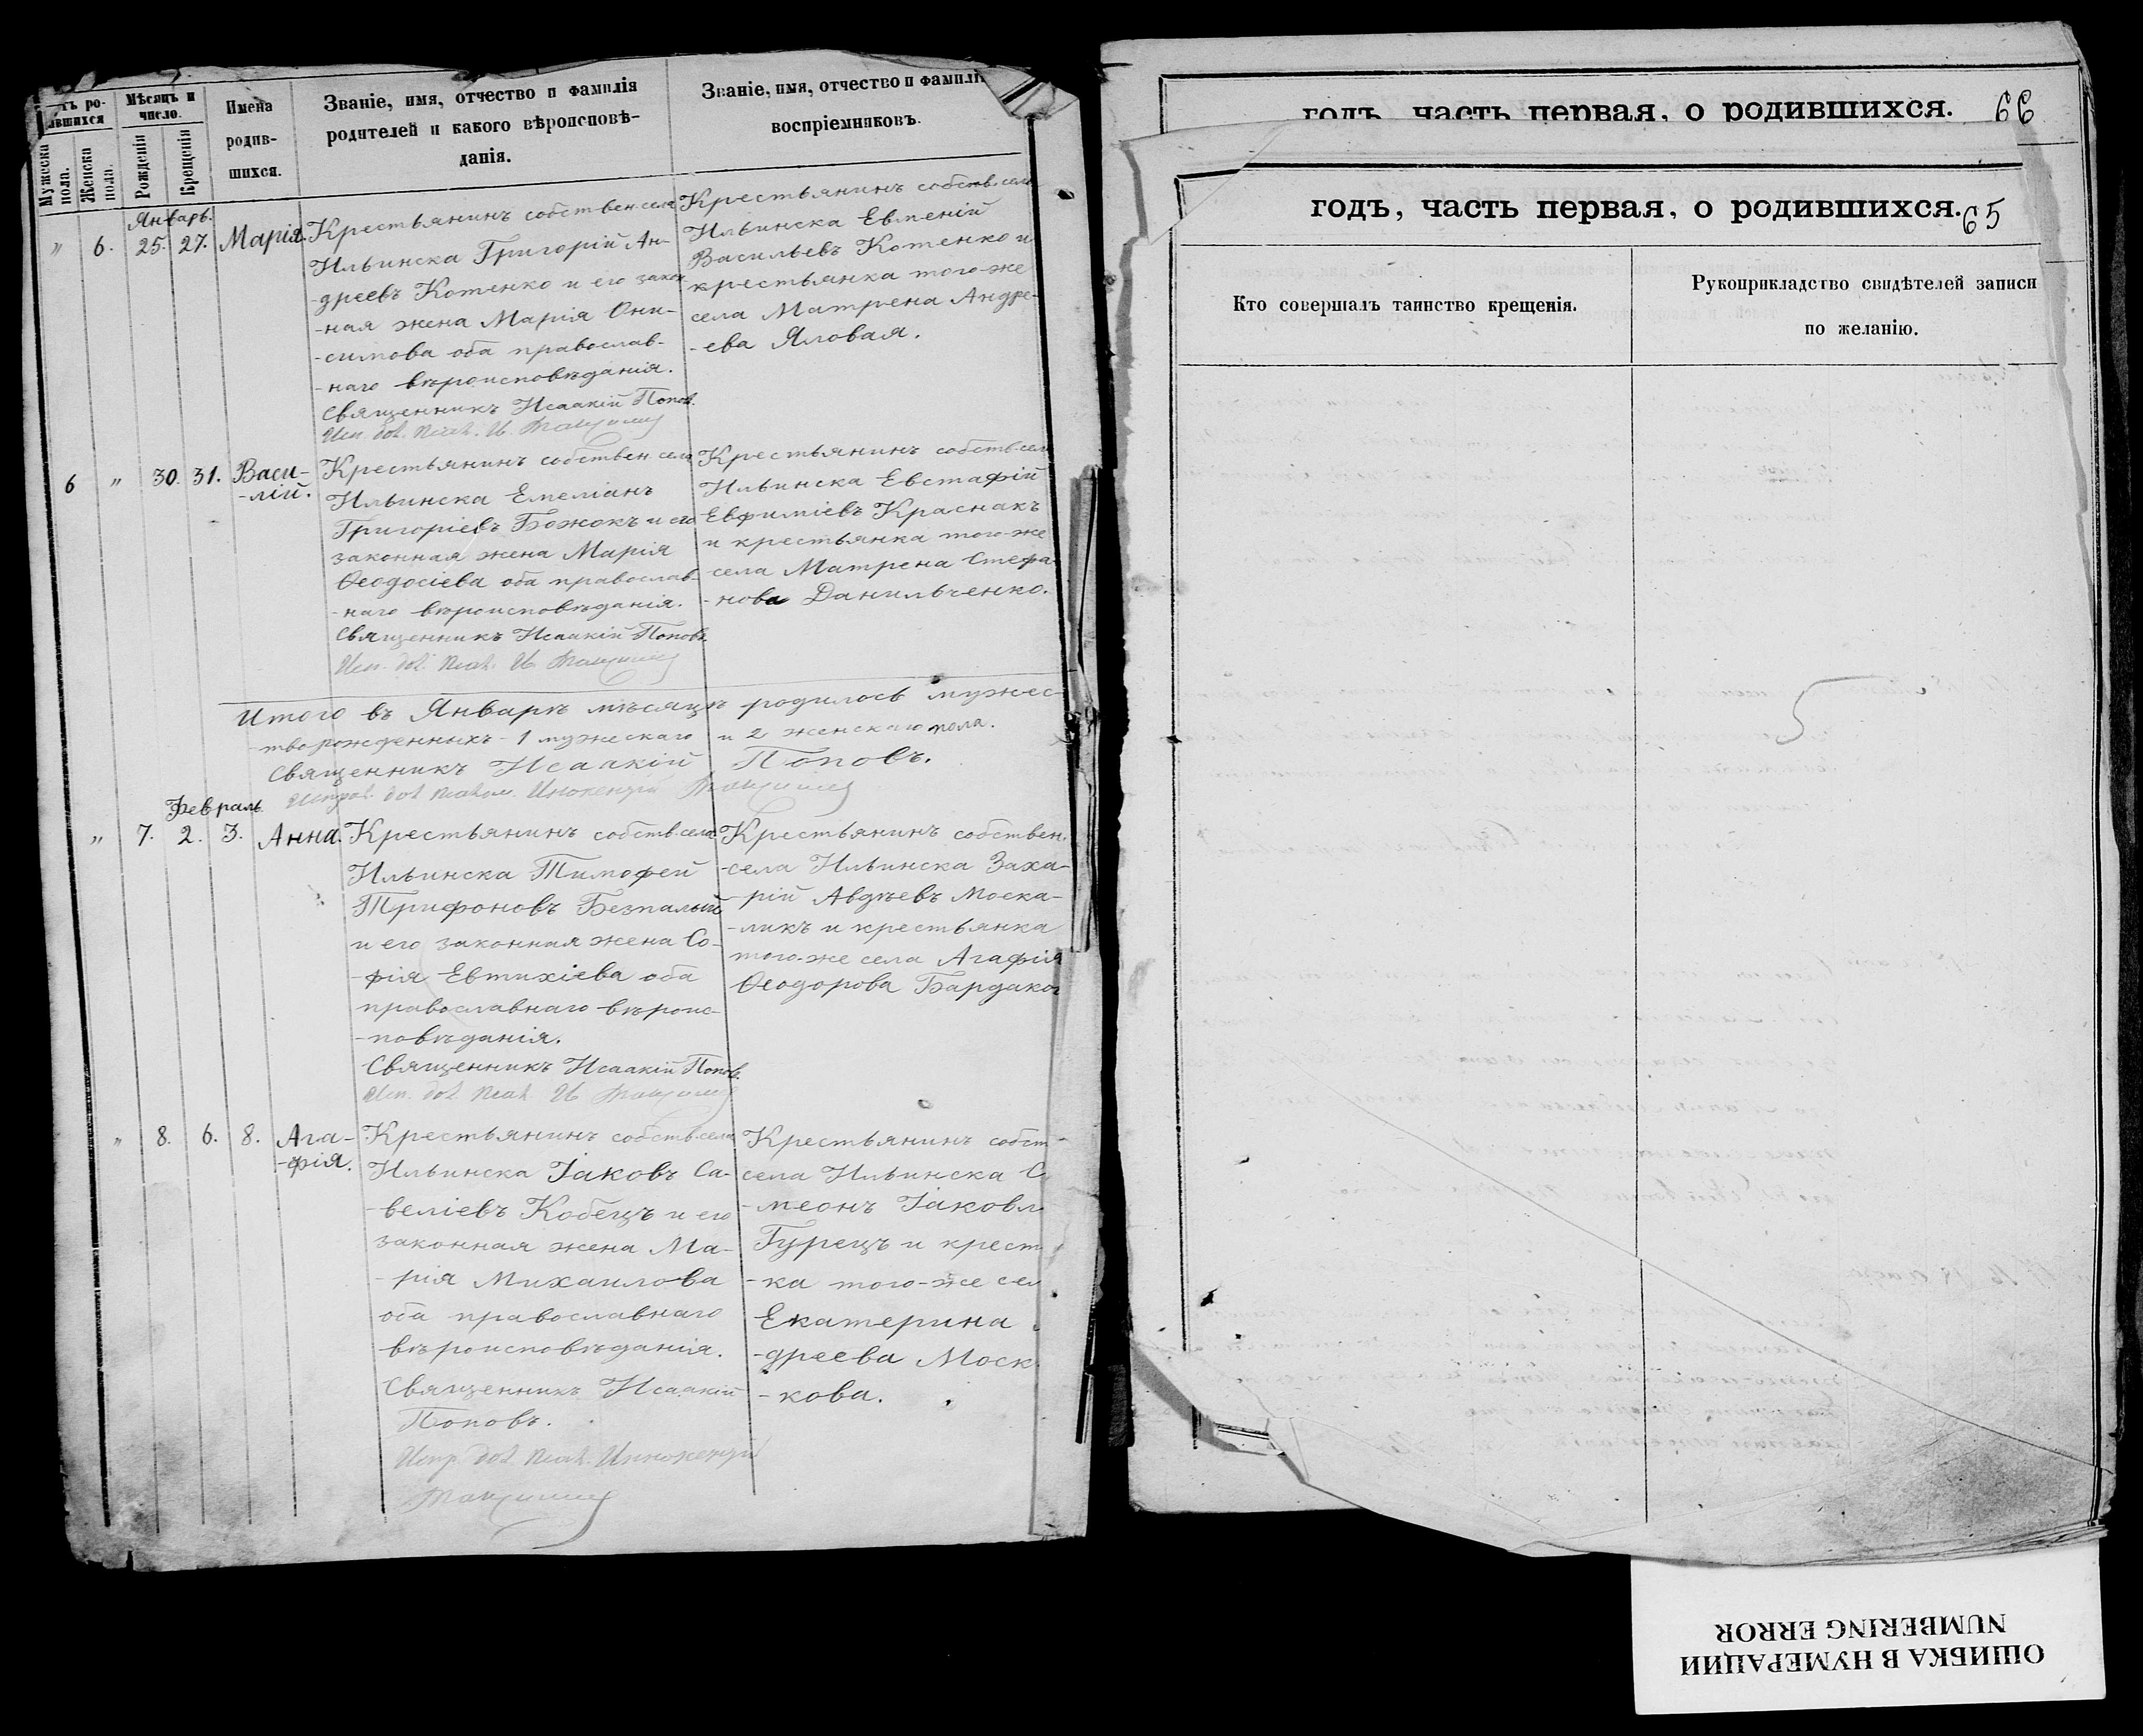 Мѣсяцъ и число.
Имена родив-шихся.
Званіе, имя, отчество и фамилія
родителей и какого вѣроисповѣ-
данія.
Званіе, имя, отчество и фамилі
воспріемниковъ.
Мужеска пола.
Женска пола.
Рожденія
Крещенія
Январь.
" 6. 25. 27. Марія.
Крестьянинъ собствен. села
Ильинска Григорій Ан-
-дреевъ Котенко и его закон
-ная жена Марія Они-
-симова оба православ-
-наго вѣроисповѣданія.
Священникъ Исаакій Попов.
Крестьянинъ собств. села
Ильинска Евмений
Васильевъ Котенко и
крестьянка того-же
села Матрена Андре-
-ева Яловая.
6 " 30. 31. Васи-
-лій.
Крестьянинъ собствен села
Ильинска Емеліанъ
Григоріевъ Божокъ и его
законная жена Марія
Ѳеодосіева оба православ-
-наго вѣроисповѣданія.
Священникъ Исаакій Поповъ.
Крестьянинъ собств. села
Ильинска Евстафій
Евфиміевъ Краснакъ
и крестьянка того-же
села Матрена Стефа-
-нова Данильченко.
Итого въ Январѣ мѣсяцѣ родилось мужес-
-творожденныхъ - 1 мужескаго и 2 женскаго пола.
Священникъ Исаакій Поповъ.
Февраль.
" 7. 2. 3. Анна.
Крестьянинъ собств. села
Ильинска Тимофей
Трифоновъ Безпалый
и его законная жена Со-
-фія Евтихіева оба
православнаго вѣроис-
-повѣданія.
Священникъ Исаакій Попов.
Крестьянинъ собствен.
села Ильинска Заха-
-рій Авдѣевъ Моска-
-ликъ и крестьянка
того-же села Агафія
Ѳеодорова Бардаков
" 8. 6. 8. Ага-
-фія.
Крестьянинъ собств. села
Ильинска Іаковъ Са-
-веліевъ Кобецъ и его
законная жена Ма-
-рія Михаилова
оба православнаго
вѣроисповѣданія.
Священникъ Исаакій
Поповъ.
Крестьянинъ собст
села Ильинска С
-меонъ Іаковл
Гурецъ и крест
-ка того-же сел
Екатерина
-дреева Моск
-кова.
годъ, часть первая, о родившихся. 66
годъ, часть первая, о родившихся. 65
Кто совершалъ таинство крещенія.
Рукоприкладство свидѣтелей записи
по желанію.
ОШИБКА В НУМЕРАЦИИ
NUMBERING ERROR